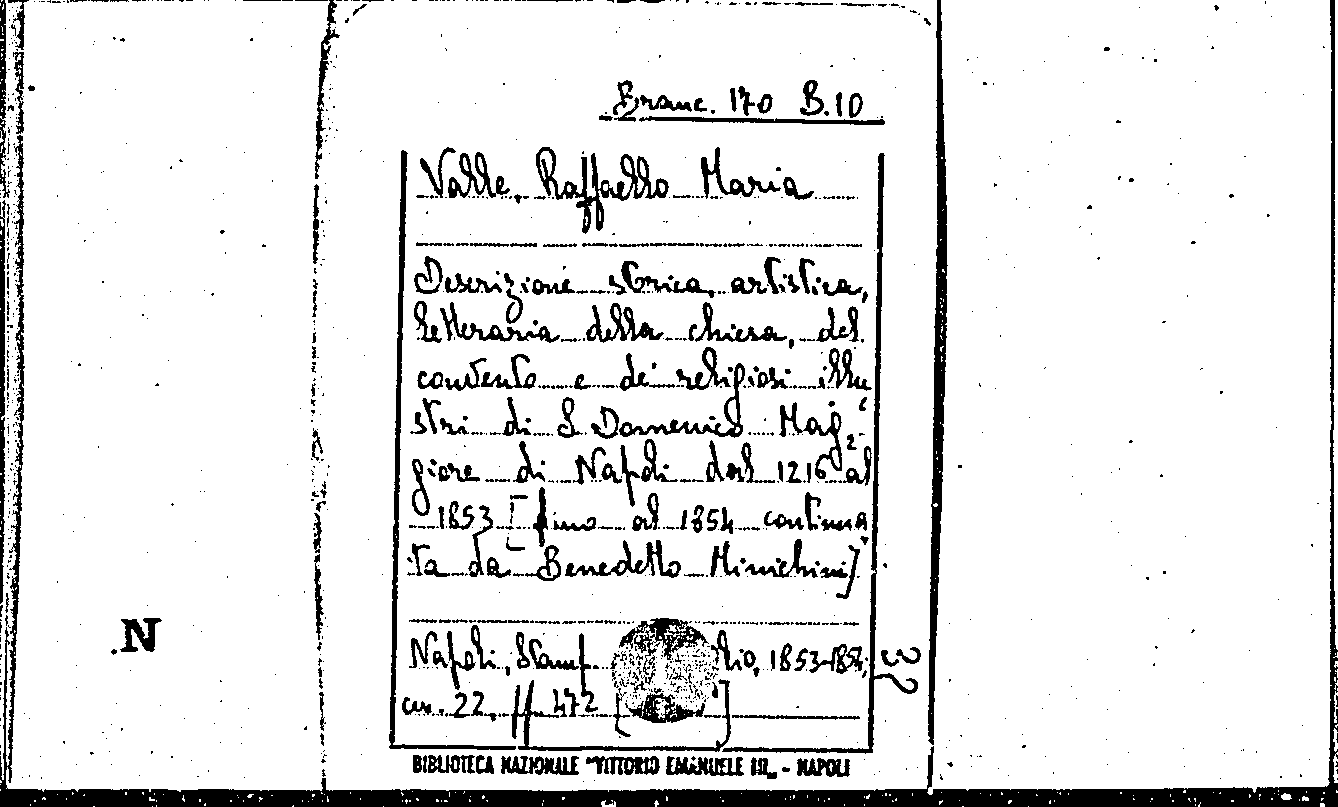 Branc. 170 B.10
Valle, Raffaello Maria
Descrizione storica, artistica,
letteraria della chiesa, del
convento e de' religiosi illu
stri di S. Domenico Mag-
giore di Napoli dal 1216 al
1853 [fino al 1854 continua
ta da Benedetto Minichini]
Napoli, Stamp. 1853-1854,
cm. 22, ff. 472 [ ]
32
N
BIBLIOTECA NAZIONALE "VITTORIO EMANUELE III" - NAPOLI